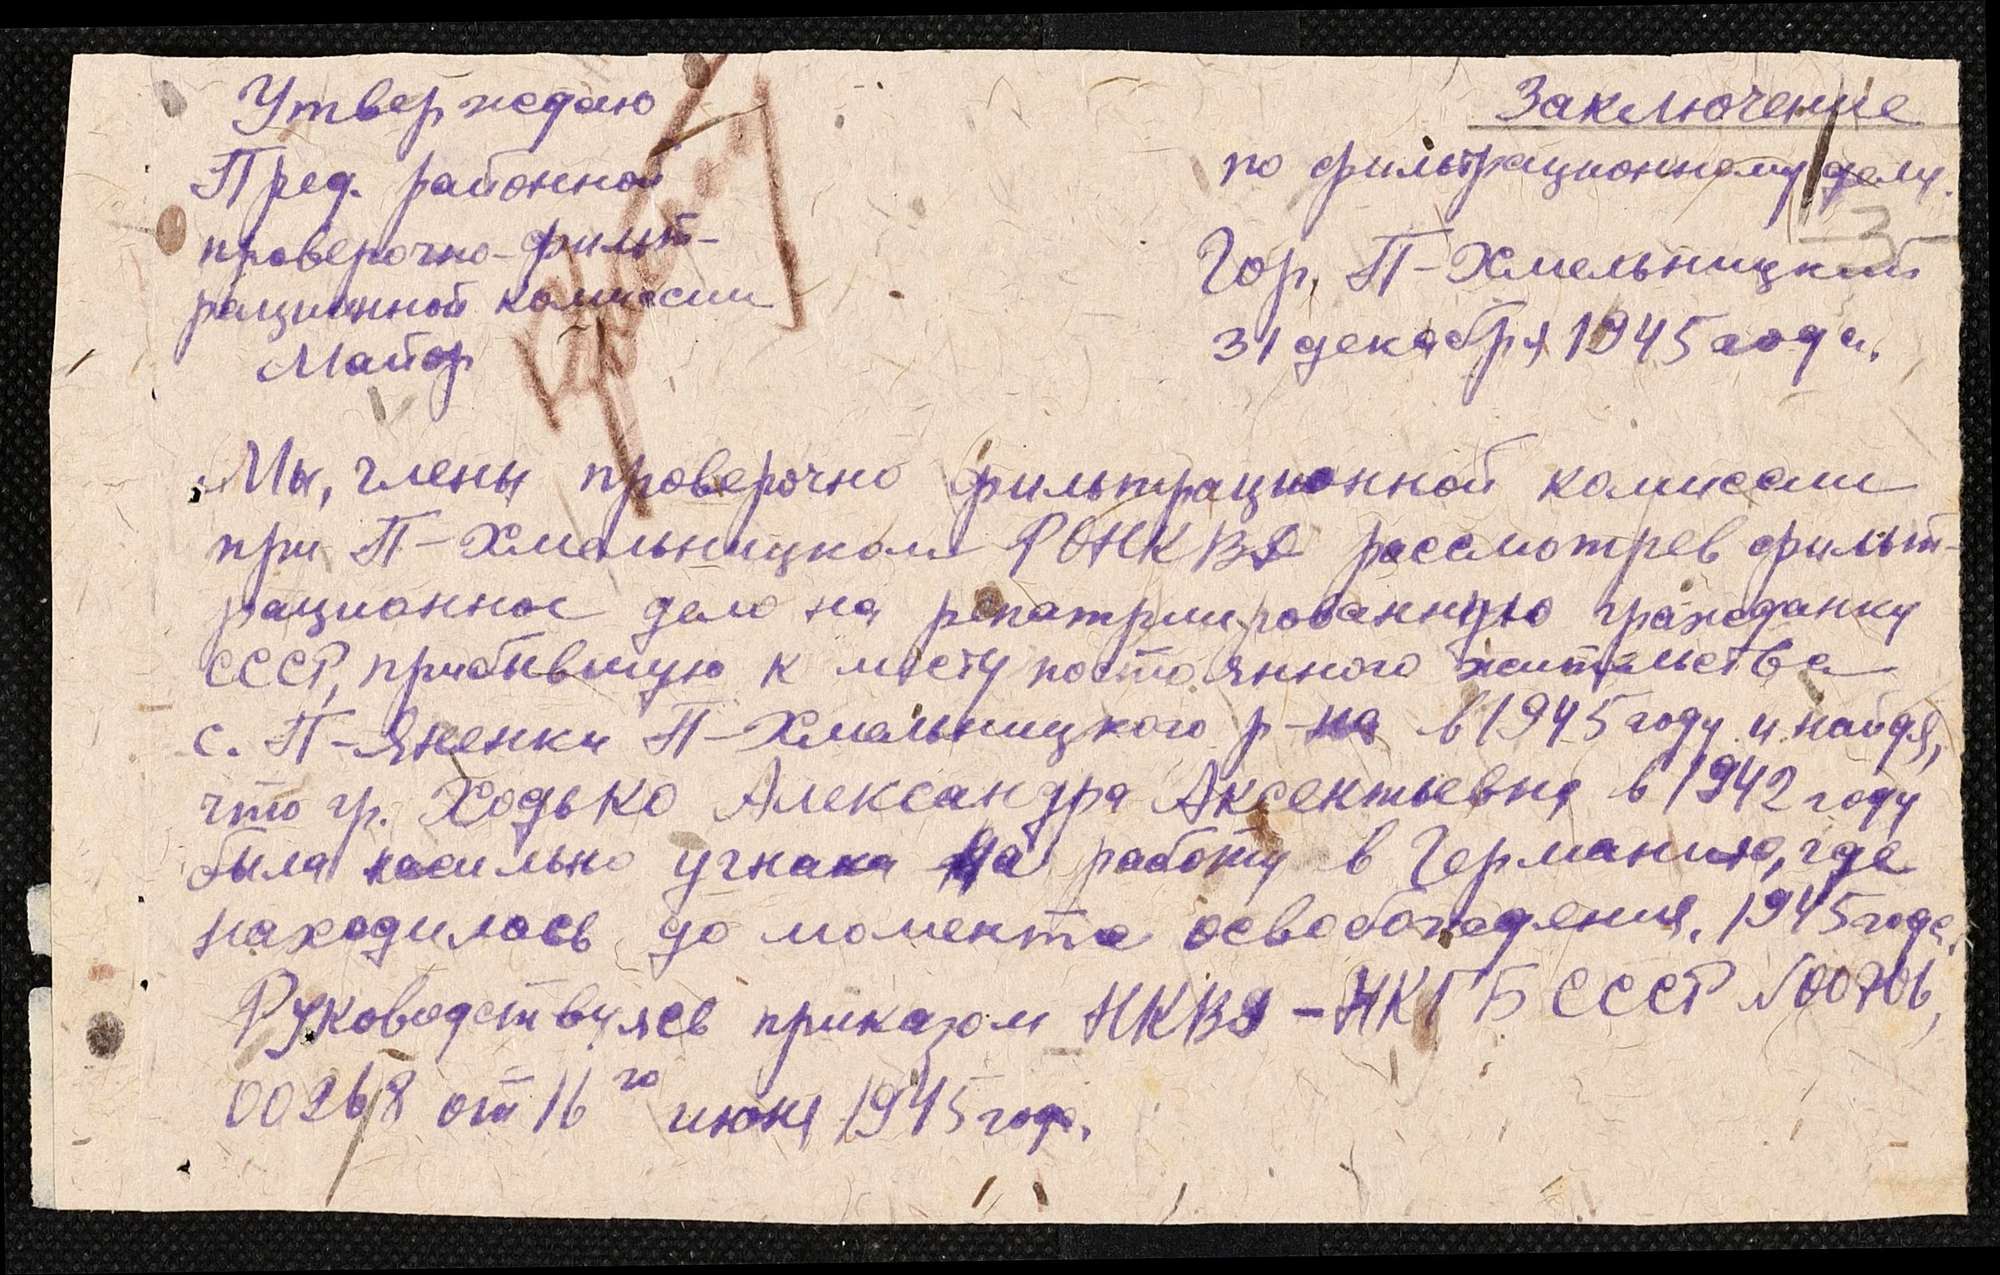 Утверждаю
Пред. районной
проверочно-фильт-
рационной комиссии
Майор
Заключение
по фильтрационному делу.
3
Гор. П-Хмельницкий
31 декабря 1945 года.
Мы, члены проверочно фильтрационной комиссии
при П-Хмельницком РОНКВД рассмотрев фильт-
рационное дело на репатриированную гражданку
СССР, прибывшую к месту постоянного жительства
с. П-Яненки П-Хмельницкого р-на в 1945 году и найдя,
что гр. Ходько Александра Аксентьевна в 1942 году
была насильно угнана на работу в Германию, где
находилась до момента освобождения, 1945 года.
Руководствуясь приказом НКВД-НКГБ СССР №00706,
00268 от 16го июня 1945 года.